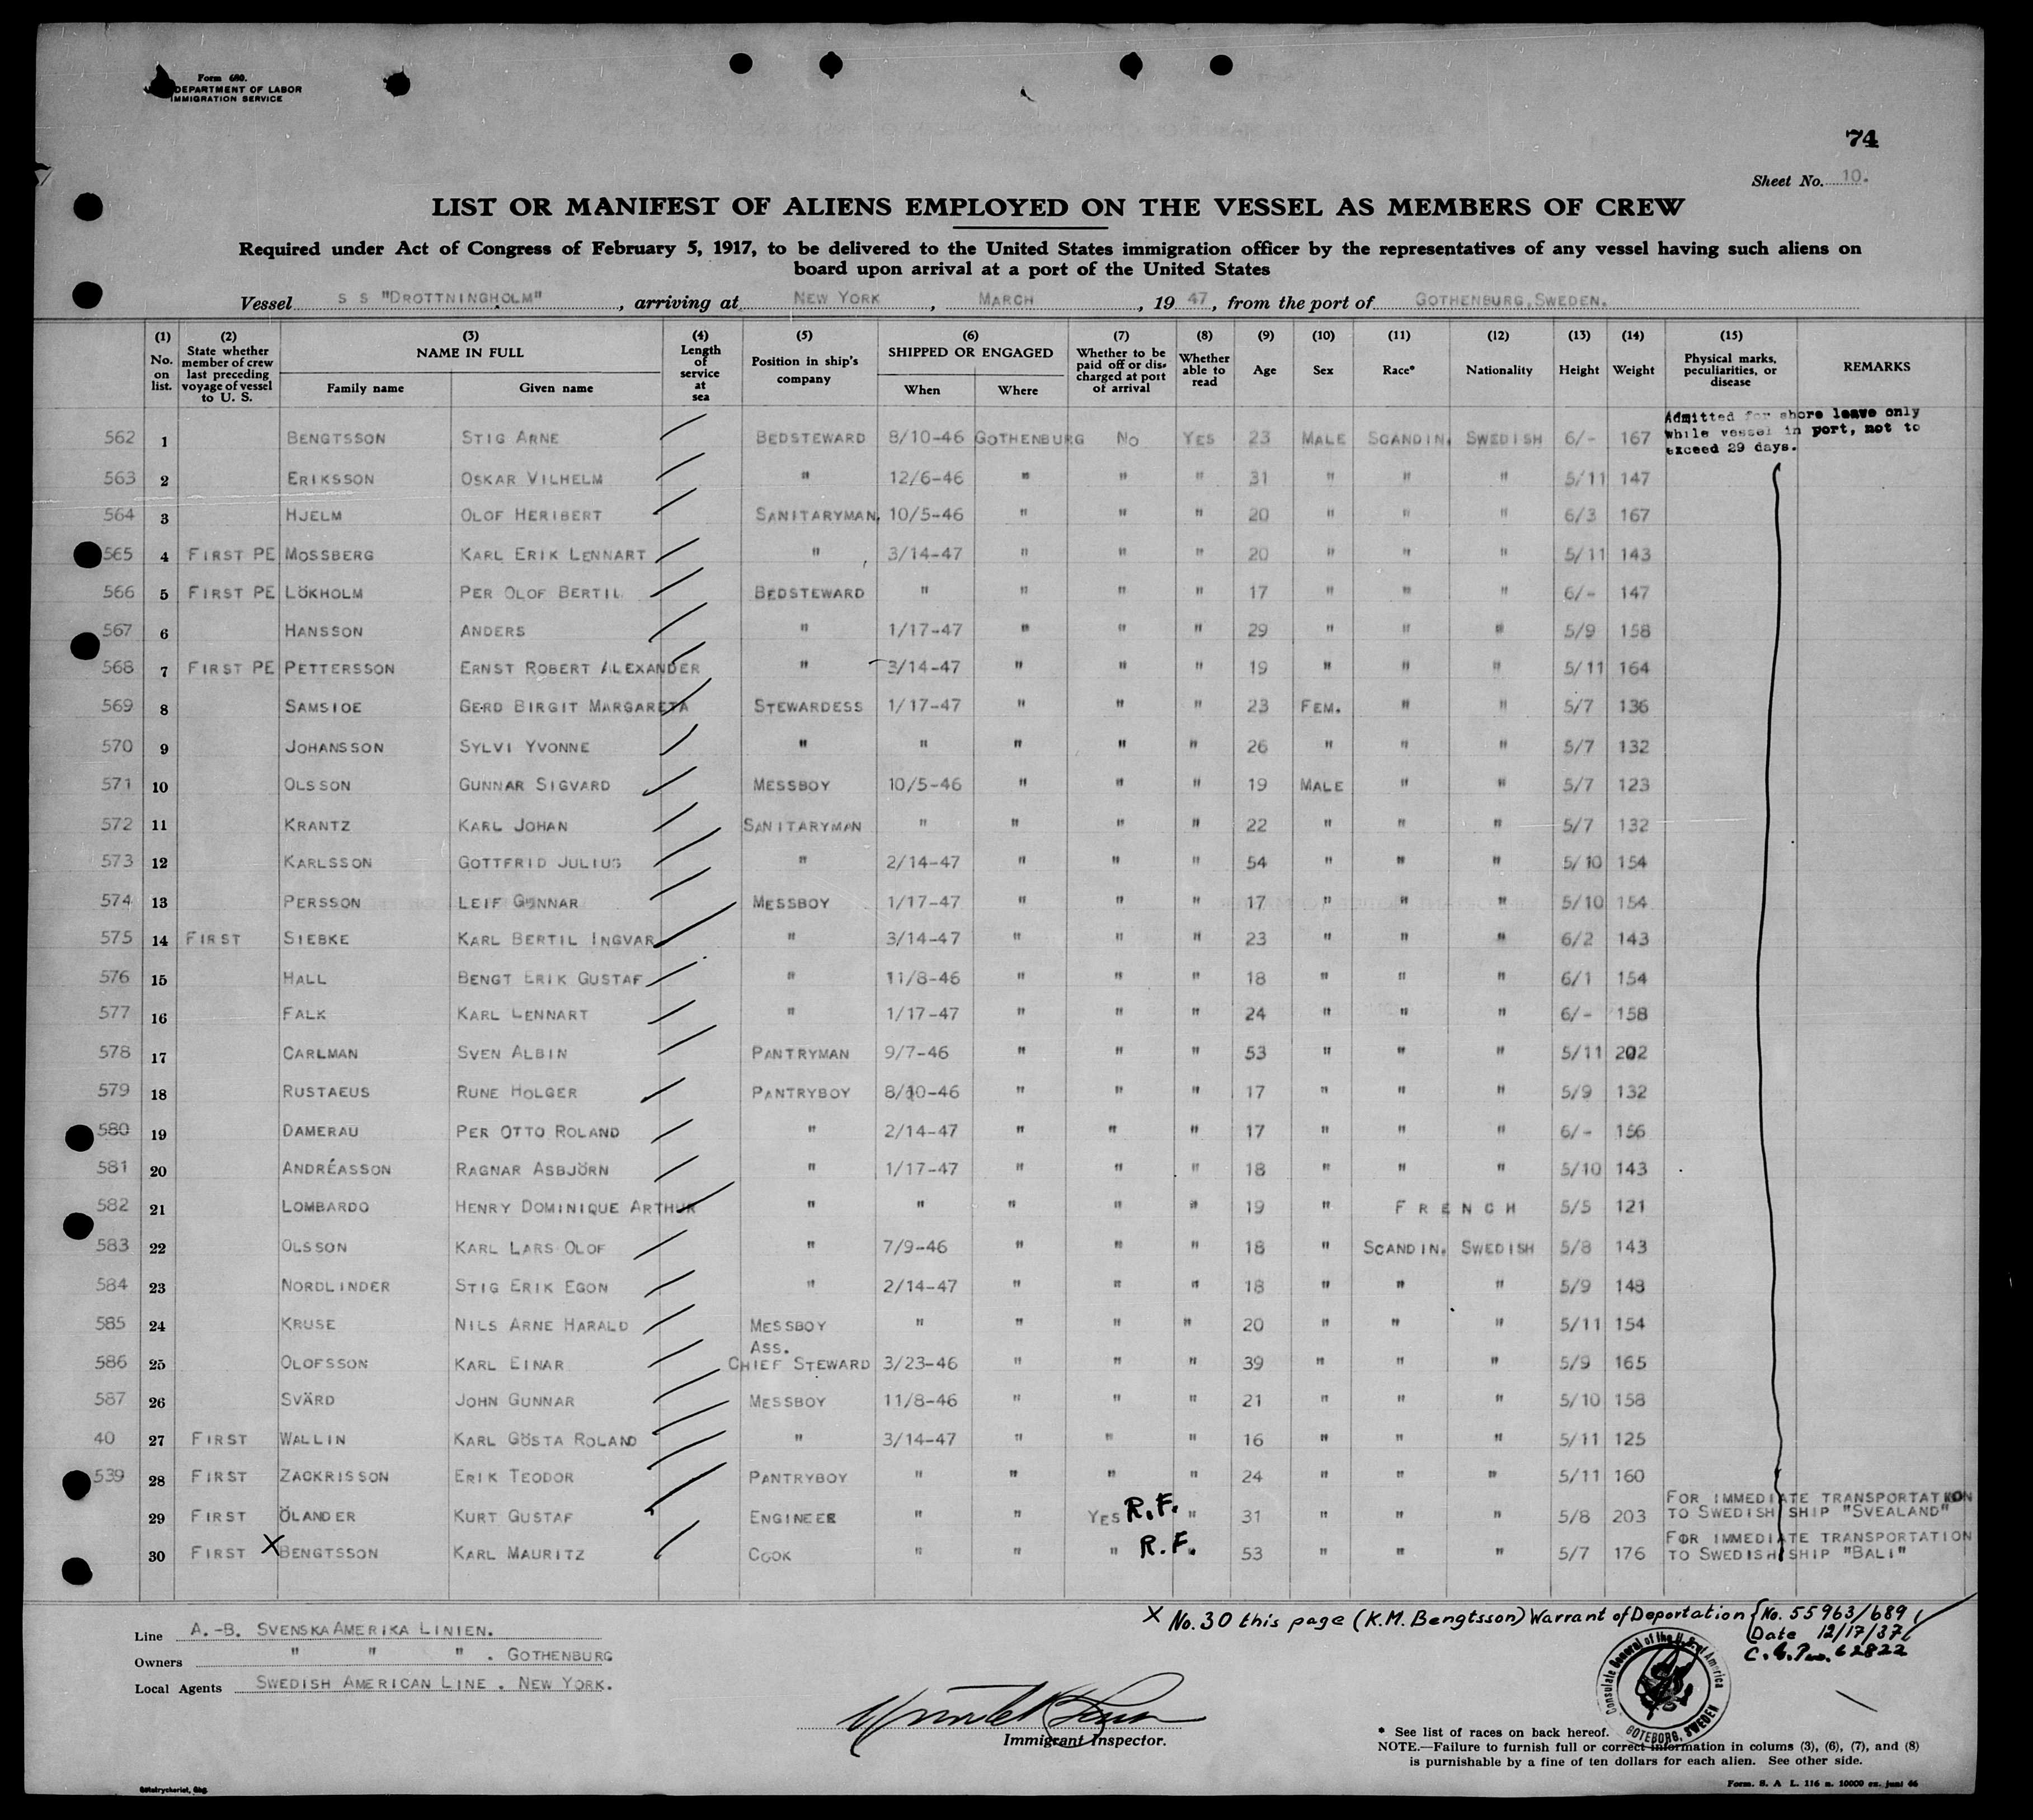 Form 680.
DEPARTMENT OF LABOR
IMMIGRATION SERVICE
74
Sheet No. 10.
LIST OR MANIFEST OF ALIENS EMPLOYED ON THE VESSEL AS MEMBERS OF CREW
Required under Act of Congress of February 5, 1917, to be delivered to the United States immigration officer by the representatives of any vessel having such aliens on
board upon arrival at a port of the United States
Vessel S S "DROTTNINGHOLM", arriving at NEW YORK, MARCH, 19 47, from the port of GOTHENBURG, SWEDEN.
(1) No. on list. (2) State whether member of crew last preceding voyage of vessel to U. S. (3) NAME IN FULL Family name Given name (4) Length of service at sea (5) Position in ship's company (6) SHIPPED OR ENGAGED When Where (7) Whether to be paid off or discharged at port of arrival (8) Whether able to read (9) Age (10) Sex (11) Race* (12) Nationality (13) Height (14) Weight (15) Physical marks, peculiarities, or disease REMARKS
Admitted for shore leave only
while vessel in port, not to
exceed 29 days.
562 1 BENGTSSON STIG ARNE BEDSTEWARD 8/10-46 GOTHENBURG NO YES 23 MALE SCANDIN. SWEDISH 6/- 167
563 2 ERIKSSON OSKAR VILHELM " 12/6-46 " " " 31 " " " 5/11 147
564 3 HJELM OLOF HERIBERT SANITARYMAN. 10/5-46 " " " 20 " " " 6/3 167
565 4 FIRST PE MOSSBERG KARL ERIK LENNART " 3/14-47 " " " 20 " " " 5/11 143
566 5 FIRST PE LÖKHOLM PER OLOF BERTIL BEDSTEWARD " " " " 17 " " " 6/- 147
567 6 HANSSON ANDERS " 1/17-47 " " " 29 " " " 5/9 158
568 7 FIRST PE PETTERSSON ERNST ROBERT ALEXANDER " 3/14-47 " " " 19 " " " 5/11 164
569 8 SAMSIOE GERD BIRGIT MARGARETA STEWARDESS 1/17-47 " " " 23 FEM. " " 5/7 136
570 9 JOHANSSON SYLVI YVONNE " " " " " 26 " " " 5/7 132
571 10 OLSSON GUNNAR SIGVARD MESSBOY 10/5-46 " " " 19 MALE " " 5/7 123
572 11 KRANTZ KARL JOHAN SANITARYMAN " " " " 22 " " " 5/7 132
573 12 KARLSSON GOTTFRID JULIUS " 2/14-47 " " " 54 " " " 5/10 154
574 13 PERSSON LEIF GUNNAR MESSBOY 1/17-47 " " " 17 " " " 5/10 154
575 14 FIRST SIEBKE KARL BERTIL INGVAR " 3/14-47 " " " 23 " " " 6/2 143
576 15 HALL BENGT ERIK GUSTAF " 11/8-46 " " " 18 " " " 6/1 154
577 16 FALK KARL LENNART " 1/17-47 " " " 24 " " " 6/- 158
578 17 CARLMAN SVEN ALBIN PANTRYMAN 9/7-46 " " " 53 " " " 5/11 202
579 18 RUSTAEUS RUNE HOLGER PANTRYBOY 8/10-46 " " " 17 " " " 5/9 132
580 19 DAMERAU PER OTTO ROLAND " 2/14-47 " " " 17 " " " 6/- 156
581 20 ANDRÉASSON RAGNAR ASBJÖRN " 1/17-47 " " " 18 " " " 5/10 143
582 21 LOMBARDO HENRY DOMINIQUE ARTHUR " " " " " 19 " F R E N C H 5/5 121
583 22 OLSSON KARL LARS OLOF " 7/9-46 " " " 18 " SCANDIN. SWEDISH 5/8 143
584 23 NORDLINDER STIG ERIK EGON " 2/14-47 " " " 18 " " " 5/9 148
585 24 KRUSE NILS ARNE HARALD MESSBOY " " " " 20 " " " 5/11 154
586 25 OLOFSSON KARL EINAR ASS. CHIEF STEWARD 3/23-46 " " " 39 " " " 5/9 165
587 26 SVÄRD JOHN GUNNAR MESSBOY 11/8-46 " " " 21 " " " 5/10 158
40 27 FIRST WALLIN KARL GÖSTA ROLAND " 3/14-47 " " " 16 " " " 5/11 125
539 28 FIRST ZACKRISSON ERIK TEODOR PANTRYBOY " " " " 24 " " " 5/11 160
29 FIRST ÖLANDER KURT GUSTAF ENGINEER " " YES R.F. " 31 " " " 5/8 203 FOR IMMEDIATE TRANSPORTATION TO SWEDISH SHIP "SVEALAND"
30 FIRST X BENGTSSON KARL MAURITZ COOK " " " R.F. 53 " " " 5/7 176 FOR IMMEDIATE TRANSPORTATION TO SWEDISH SHIP "BALI"
X No. 30 this page (K.M. Bengtsson) Warrant of Deportation { No. 55963/689
Date 12/17/37
62822
Line A.-B. SVENSKA AMERIKA LINIEN.
Owners " " " . GOTHENBURG
Local Agents SWEDISH AMERICAN LINE . NEW YORK.
Immigrant Inspector.
Consulate General of the U.S. of America
GÖTEBORG, SWEDEN
* See list of races on back hereof.
NOTE.—Failure to furnish full or correct information in colums (3), (6), (7), and (8)
is purnishable by a fine of ten dollars for each alien. See other side.
Form. S. A L. 116 n. 10000 ex. juni 46